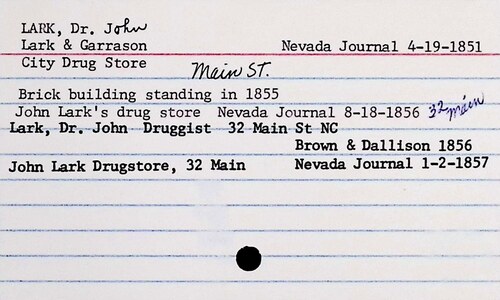 LARK, Dr. John
Lark & Garrason Nevada Journal 4-19-1851
City Drug Store
Main ST.
Brick building standing in 1855
John Lark's drug store Nevada Journal 8-18-1856 32 Main
Lark, Dr. John Druggist 32 Main St NC
Brown & Dallison 1856
John Lark Drugstore, 32 Main Nevada Journal 1-2-1857